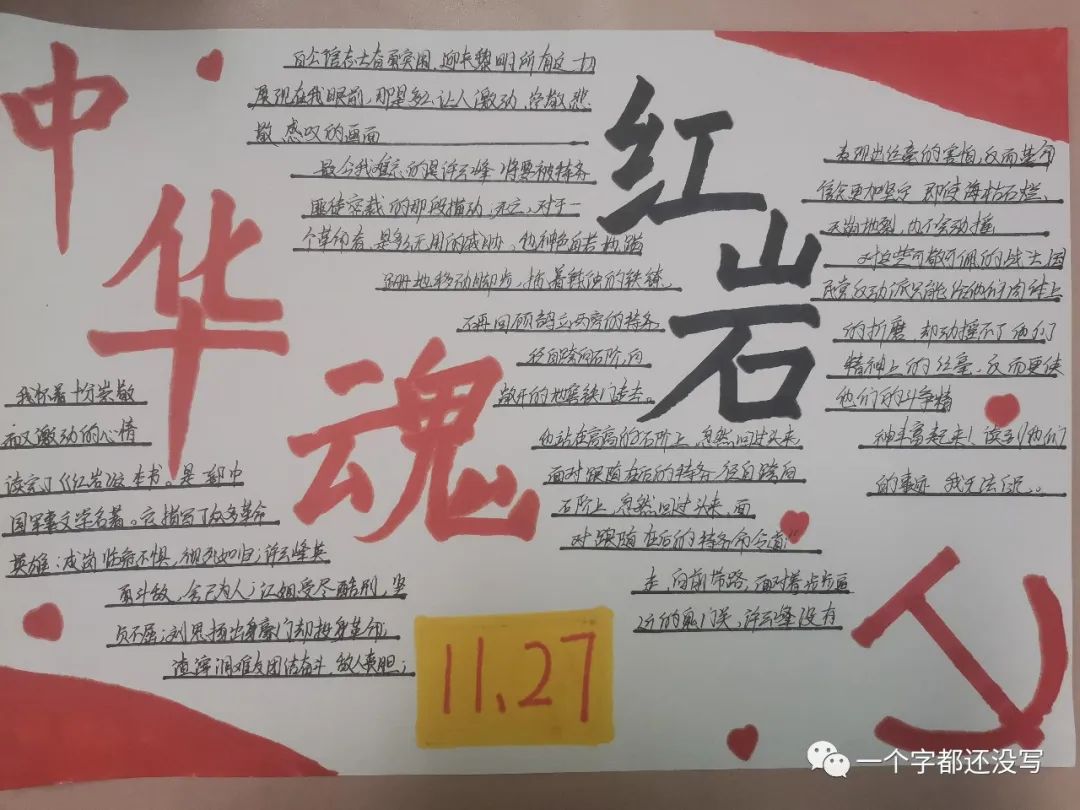 中华魂
红岩
我怀着十份崇敬
而又激动的心情
读完了《红岩》这本书。是一部中
国军事文学名著。它描写了众多革命
英雄：成岗临危不惧，视死如归；许云峰英
勇斗敌，舍己为人；江姐受尽酷刑，坚
贞不屈；刘思扬出身豪门却投身革命；
渣滓洞难友团结奋斗，敌人丧胆；
白公馆志士奋勇突围，迎来黎明所有这一切
展现在我眼前，那是多么让人激动，
感叹的画面
最令我难忘的是许云峰将要被特务
匪徒 的那段描动：死亡，对于一
个革命者，是多么无用的威胁。他神色自若地蹒
跚地移动脚步，拖着 的铁镣，
不再回顾鹄立两旁的特务，
径自跨向石阶，向
敞开的地窖铁门走去。
他站在高高的石阶上，忽然回过头来，
面对跟随在后的特务，径自跨向
石阶上，忽然回过头来，面
对跟随在后的特务命令道：“
走，向前带路，面对着步步逼
近的鬼门关，许云峰没有
表现出丝毫的害怕，反而革命
信念更加坚定，即使海枯石烂，
天崩地裂，也不会动撞
对这些可敬可佩的战士国
民党反动派只能给他们肉体上
的折磨，却动撞不了他们
精神上的丝毫，反而更使
他们的斗争精
神丰富起来！读到他们
的事迹，我无法
11.27
一个字都还没写